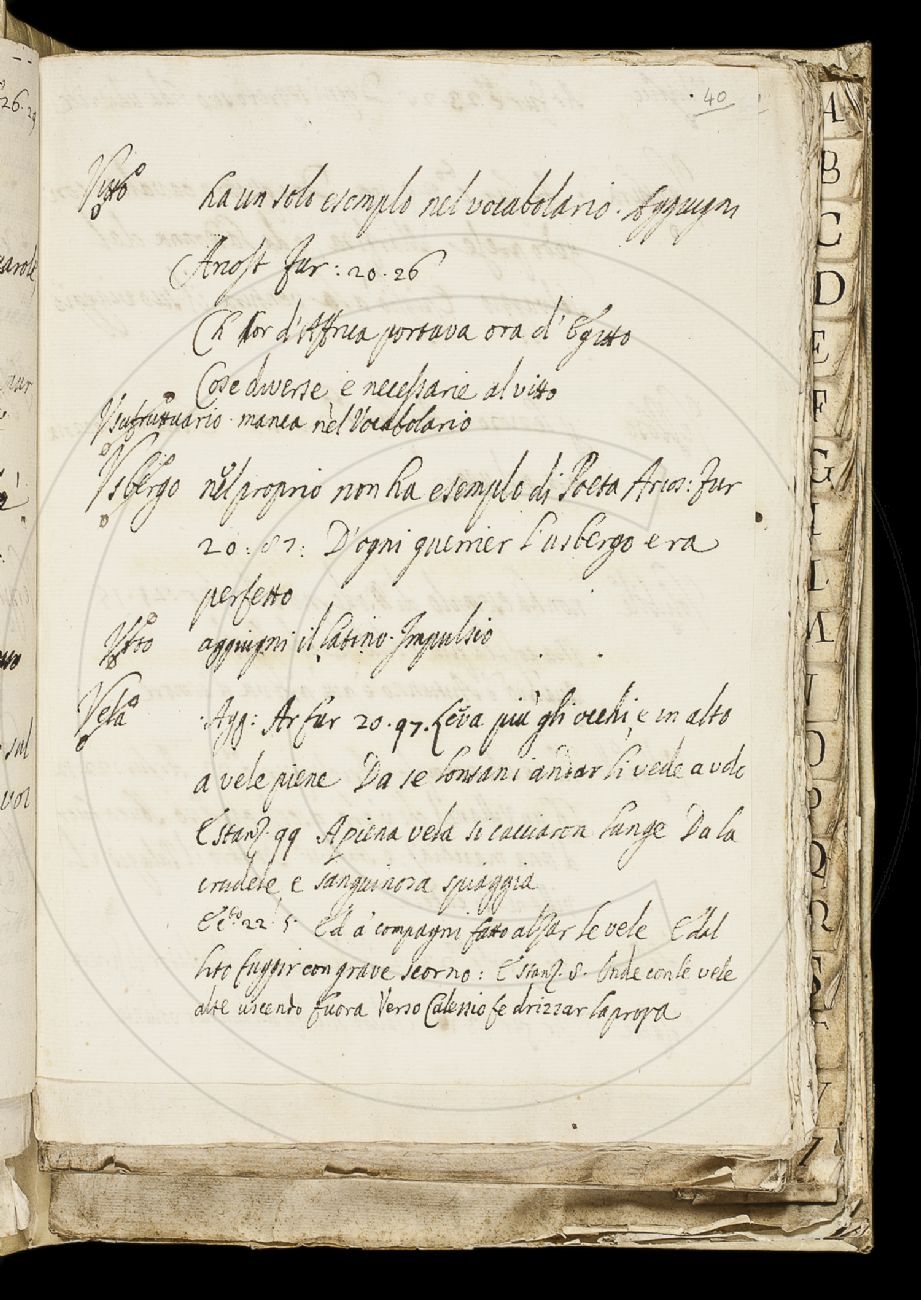 40
Vitto ha un solo esemplo nel vocabolario. Aggiugni
Ariost fur: 20. 26
Ch or d'Affrica portava ora d'Egitto
Cose diverse e necessarie al vitto
Usufruttuario. manca nel Vocabolario
Usbergo nel proprio non ha esemplo di Poeta Arios: fur
20: 87: D'ogni guerrier l'usbergo era
perfetto
aggiugni il latino. Impulsio
Vela. Agg: Ar fur 20. 97. Leva più gli occhi, e in alto
a vele piene Da se lontani andar li vede a volo
E stanz. 99 A piena vela si cacciaron lunge Da la
crudele e sanguinosa spiaggia
E C.to 22. 5. Ed a' compagni fatto alzar le vele E dal
lito fuggir con grave scorno: E stanz. 8. Indi con le vele
alte uscendo fuora Verso Calessio fe drizzar la prora
A
B
C
D
E
F
G
I
L
M
N
O
P
Q
R
S
V
Z